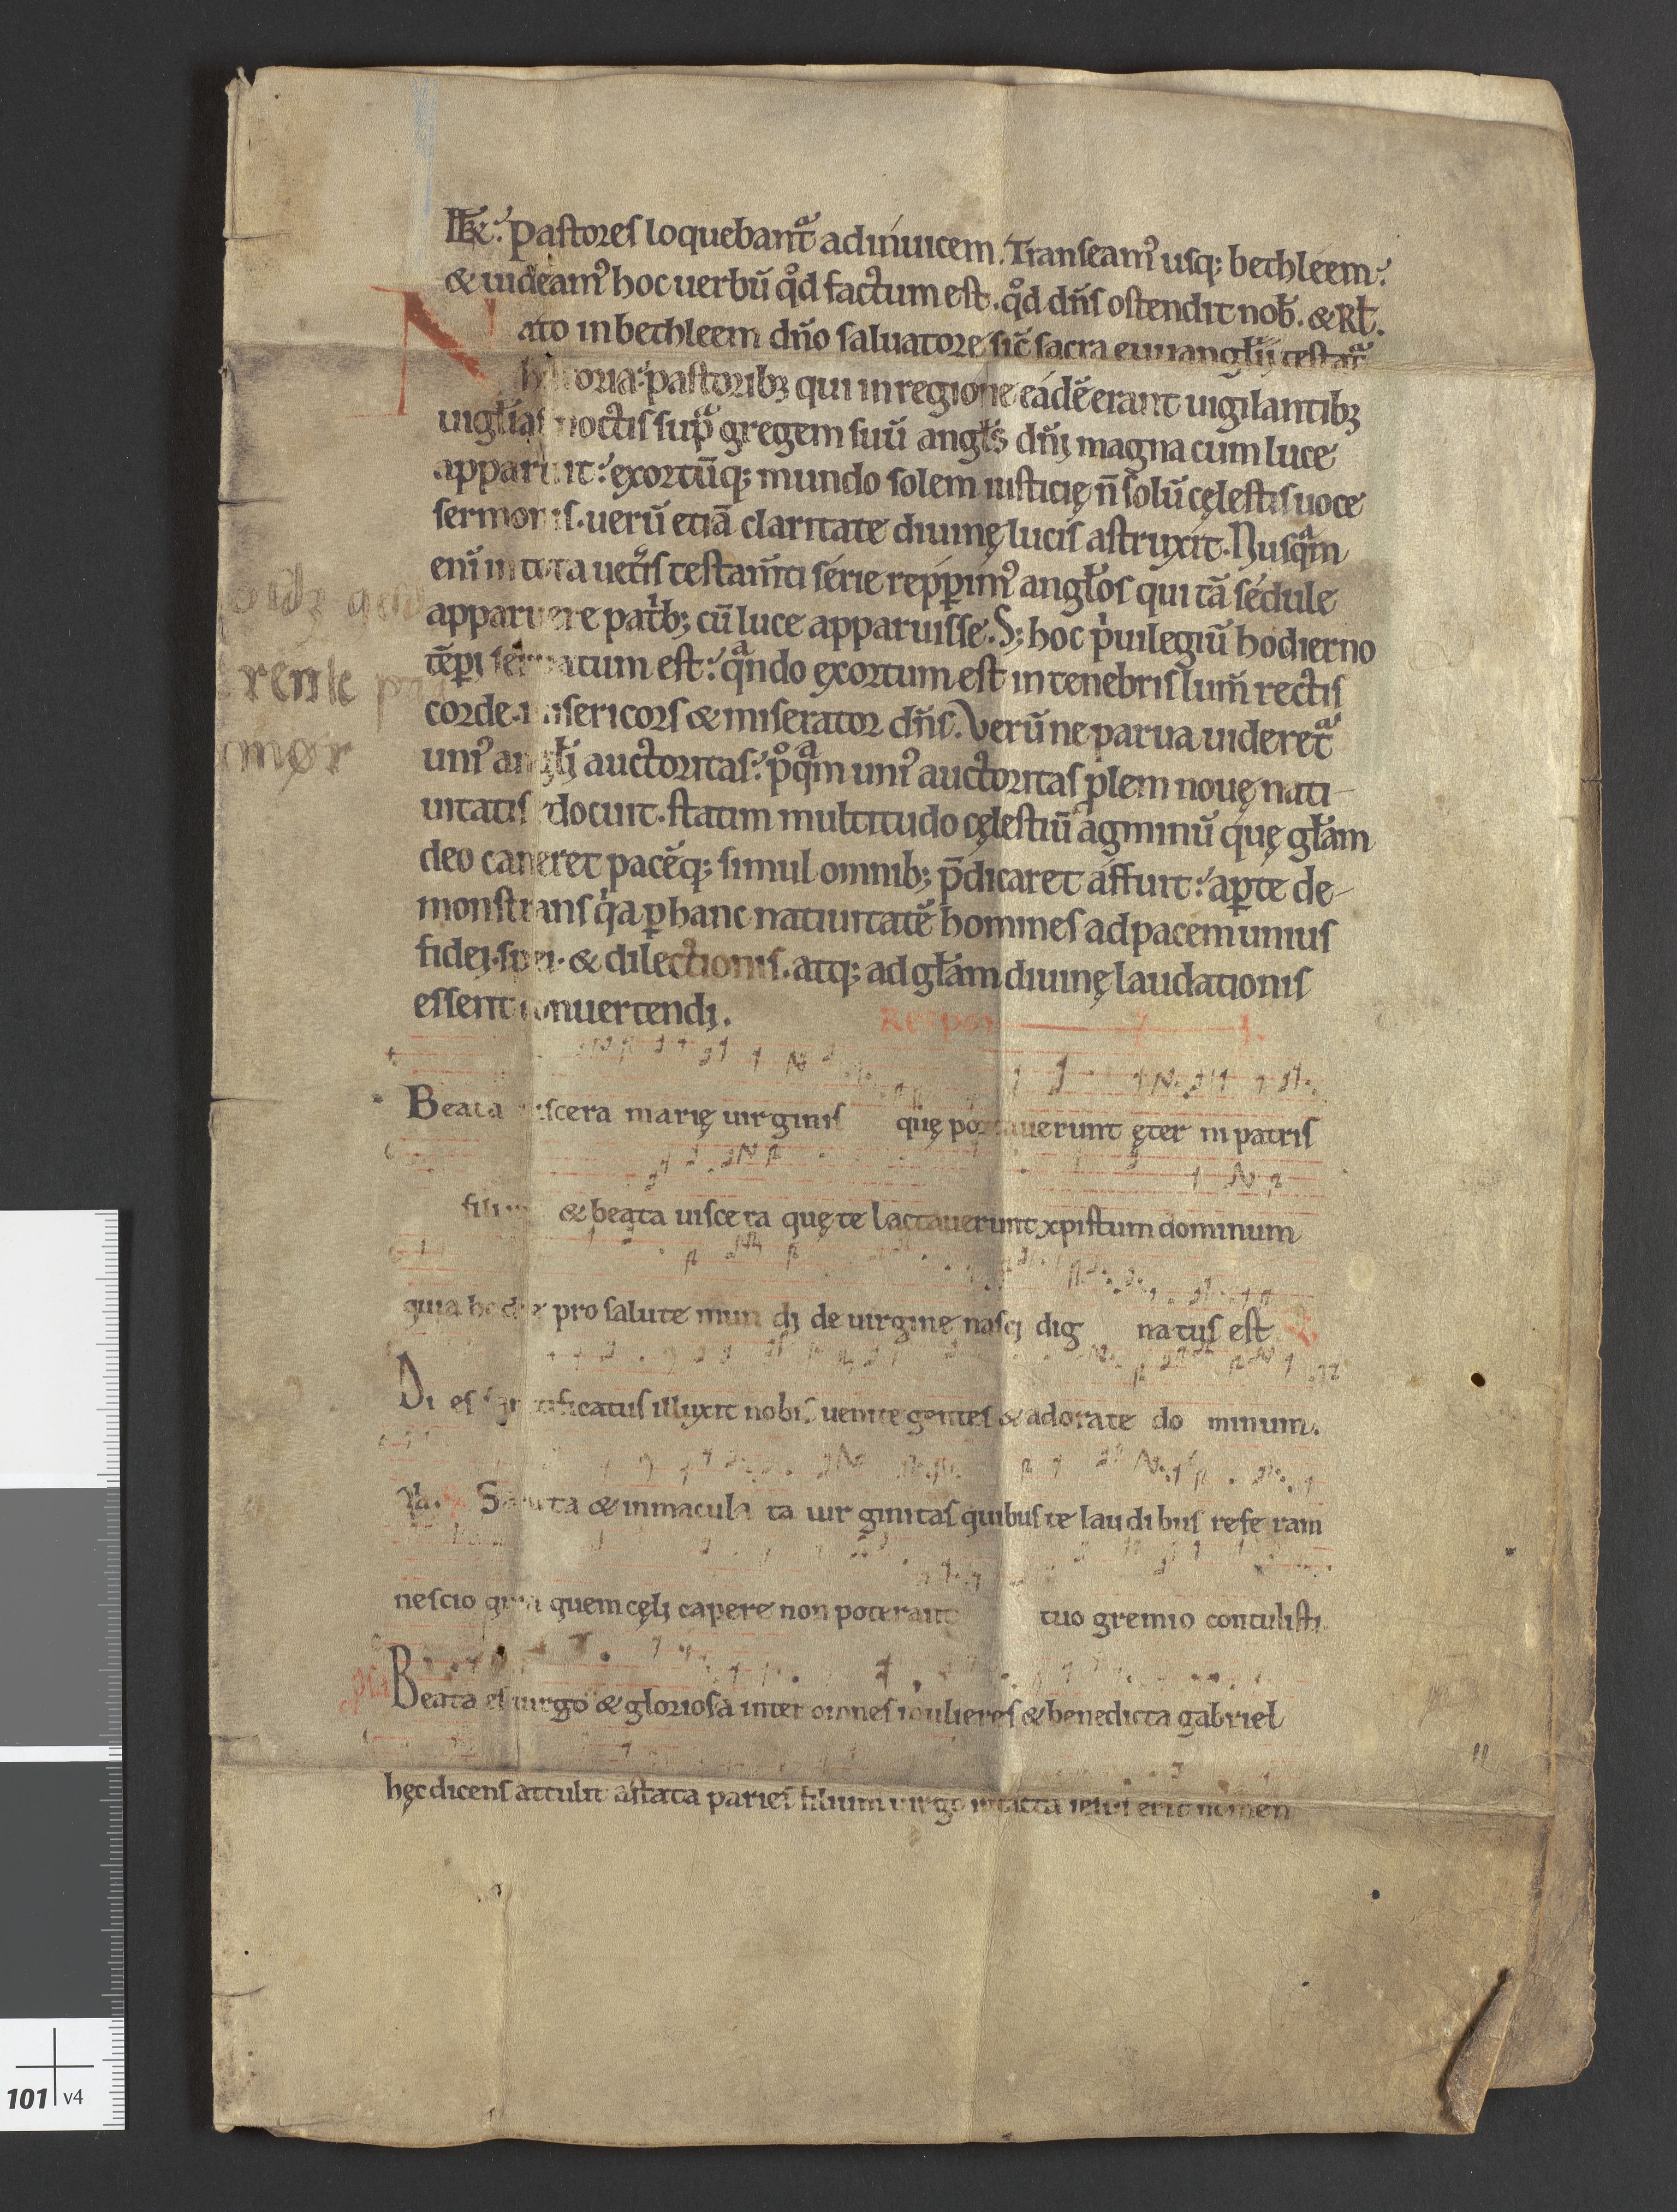 Pastores loquebant᷑ adinuicem. Transeam᷒ usq; bethleem.
& uideam᷒ hoc uerbū qd̊ factum est. qd̊ dn̄s ostendit nob̄. & Rł.
Nato in bethleem dn̄o saluatore sic̄ sacra euuanglīj testat᷑
historia pastoribꝫ qui in regione eádē erant uigilantibꝫ
uiglīas noctis supᷓ gregem suū angłs dn̄j magna cum luce
apparuit. exortūq; mundo solem iusticię n̄ solū cęlestis uoce
sermonis. uerū etiā claritate diuinę lucis astruxit. Nusqᷓm
enī in tota uet̄is testam̄ti série repꝑim᷒ angłos qui tā sédule
apparuere patⁱb; cū luce apparuisse. S; hoc pⁱuilegiū hodierno
tēꝑi seruatum est. qᷓndo exortum est in tenebris lum̄ rectis
corde. misericors & miserator dn̄s. Verū ne parua uideret᷑
uni᷒ anglī auctoritas. p̊qᷓm uni᷒ auctoritas ꝓlem nouę nati-
uitatis docuit. statim multitudo cęlestiū agminū quę głam
deo caneret pacēq; simul omnib; p̄dicaret affuit. aꝑte de-
monstrans qⁱa ꝑ hanc natiuitatē homines ad pacem unius
fidej. spei. & dilectionis. atq; ad głam diuinę laudationis
essent conuertendj.
Respon
Beata uiscera marię uirginis quę portauerunt ęter ni patris
filium & beata uisce ra quę te lactauerunt xpistum dominum
quia hodie pro salute mun dj de uirgine nascj dig natus est
Di es sanctificatus illuxit nobis uenite gentes & adorate do minum.
Sancta & inmacula ta uir ginitas quibus te laudi bus refe ram
nescio quia quem cęlj capere non poterant tuo gremio contulistj
Beata es uirgo & gloriosa inter omnes mulieres & benedicta gabriel
hęc dicens attulit astata paries filium uirgo intacta iesus erit nomen
rente
mor